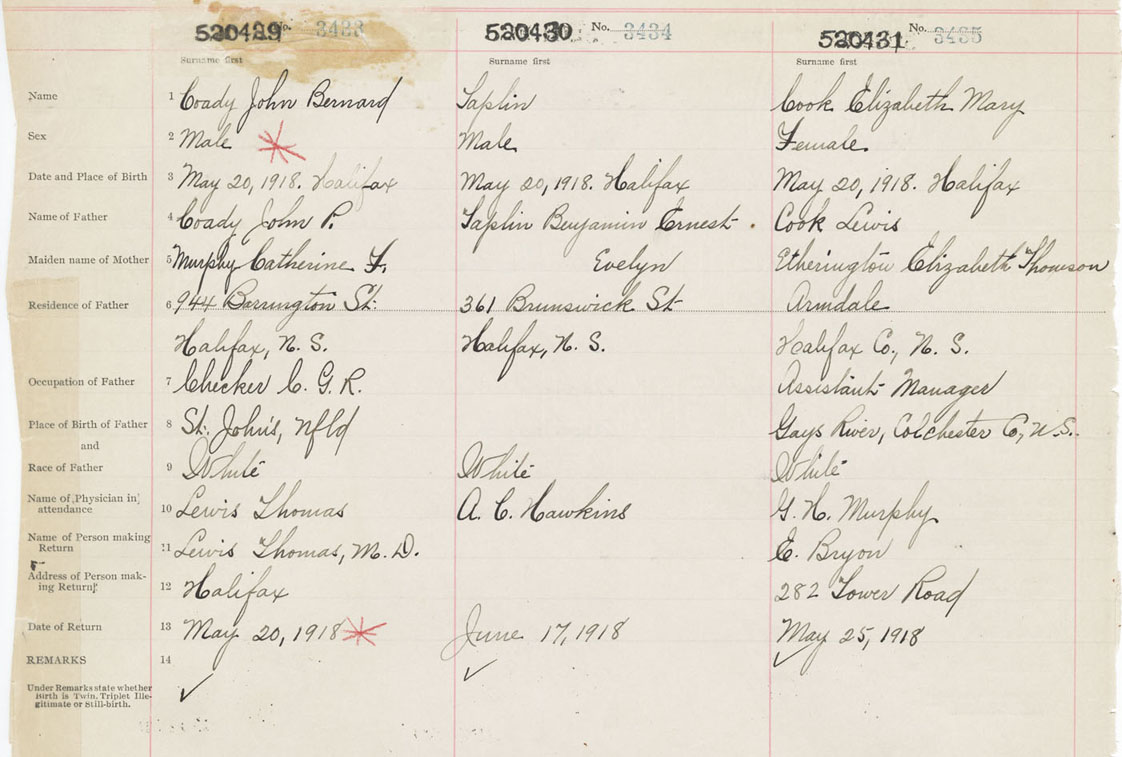 520429 No. 3433 520430 No. 3434 520431 No. 3435
Surname first Surname first Surname first
Name 1 Coady John Bernard Taplin Cook Elizabeth Mary
Sex 2 Male Male Female.
Date and Place of Birth 3 May 20, 1918. Halifax May 20, 1918. Halifax May 20, 1918. Halifax
Name of Father 4 Coady John P. Taplin Benjamin Ernest Cook Lewis
Maiden name of Mother 5 Murphy Catherine F. Evelyn Etherington Elizabeth Thomson
Residence of Father 6 944 Barrington St. 361 Brunswick St Armdale
Halifax, N. S. Halifax, N. S. Halifax Co., N. S.
Occupation of Father 7 Checker C. G. R. Assistant Manager
Place of Birth of Father 8 St. John's, Nfld Gays River, Colchester Co, N.S.
and
Race of Father 9 White White White
Name of Physician in
attendance 10 Lewis Thomas A. C. Hawkins G. H. Murphy
Name of Person making
Return 11 Lewis Thomas, M. D. E. Bryon
Address of Person mak-
ing Return 12 Halifax 282 Tower Road
Date of Return 13 May 20, 1918 June 17, 1918 May 25, 1918
REMARKS 14
Under Remarks state whether
Birth is Twin, Triplet Ille-
gitimate or Still-birth.